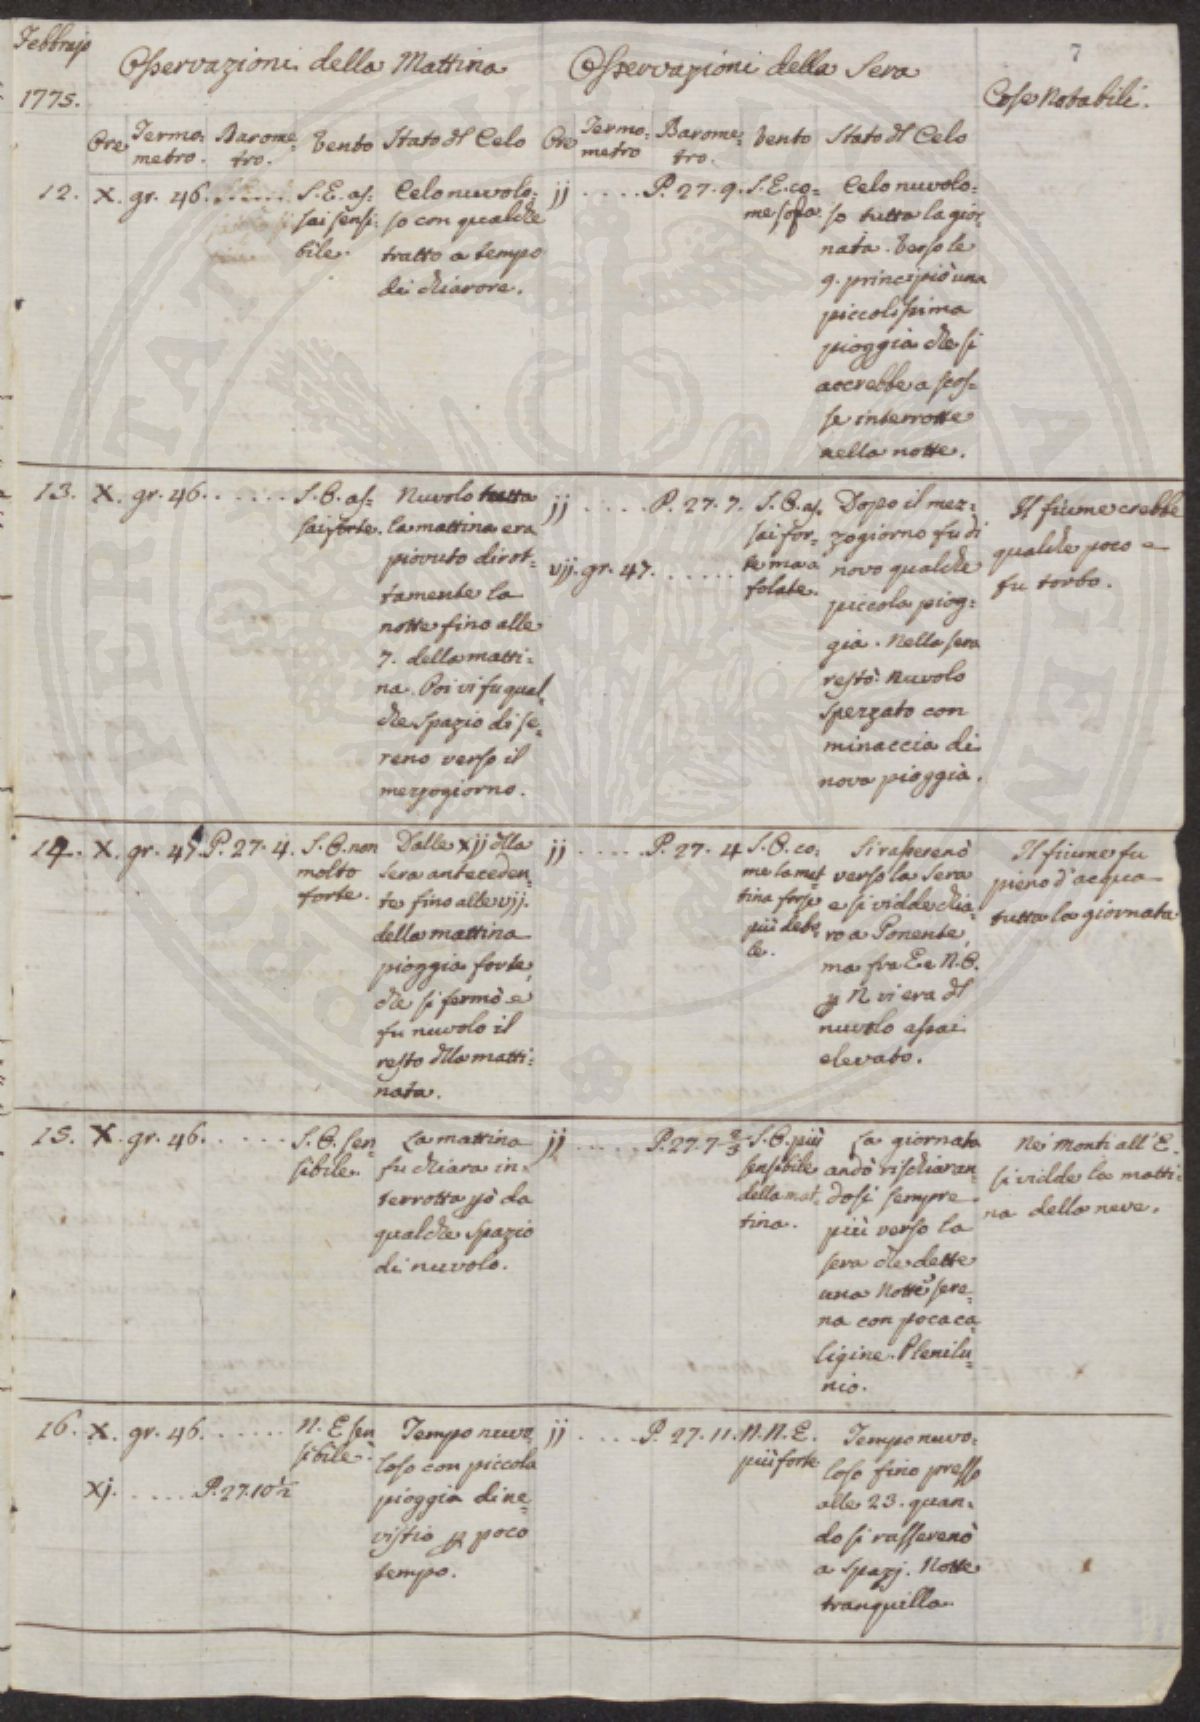 Febbrajo
1775.
Osservazioni della Mattina
Osservazioni della Sera
7
Cose Notabili.
Ore Termo: metro. Barome: tro. Vento Stato dl Celo
Ore Termo: metro Barome: tro. Vento Stato dl Celo
12. X. gr. 46. . . . . . .
S. E. as:
sai sensi:
bile.
Celo nuvolo:
so con qualche
tratto a tempo
di chiarore.
jj . . . . P. 27. 9.
S. E. co=
me sopa.
Celo nuvolo:
so tutta la gior:
nata. Verso le
9. principiò una
piccolissima
pioggia che si
accrebbe a scos=
se interrotte
nella notte.
13. X. gr. 46. . . . . .
S. O. as:
sai forte.
Nuvolo tutta
la mattina era
piovuto dirot:
tamente la
notte fino alle
7. della matti:
na. Poi vi fu qual
che spazio di se:
reno verso il
mezzogiorno.
jj . . . . P. 27. 7.
vjj. gr. 47. . . . . .
S. O. as.
sai for:
te ma a
folate.
Dopo il mez:
zogiorno fu di
novo qualche
piccola piog:
gia. Nella sera
restò nuvolo
sperzato con
minaccia di
nova pioggia.
Il fiume crebbe
qualche poco e
fu torbo.
14. X. gr. 45. P. 27. 4.
S. O. non
molto
forte.
Dalle xjj dlla
sera anteceden:
te fino alle vjj.
della mattina
pioggia forte,
che si fermò e
fu nuvolo il
resto dlla matti:
nata.
jj . . . . . P. 27. 4
S. O. co:
me la mat
tina forse
più debo:
le.
Si rasserenò
verso la sera
e si vidde chia:
ro a Ponente,
ma fra E e N. O.
p N vi era dl
nuvolo assai
elevato.
Il fiume fu
pieno d'acqua
tutta la giornata
15. X. gr. 46. . . . . .
S. O. sen
sibile.
La mattina
fu chiara in:
terrotta pò da
qualche spazio
di nuvolo.
jj . . . . . P. 27. 7 2/3
S. O. più
sensibile
della mat:
tina.
La giornata
andò rischiaran:
dosi sempre
più verso la
sera che dette
una Notte sere:
na con poca ca:
ligine. Plenilu:
nio.
Nei Monti all'E.
si vidde la matti:
na della neve.
16. X. gr. 46. . . . . . .
xj. . . . . . P. 27. 10 1/2
N. E sen
sibile.
Tempo nuvo
loso con piccola
pioggia di ne:
vistio p poco
tempo.
jj . . . . P. 27. 11.
N. N. E.
più forte
Tempo nuvo:
loso fino presso
alle 23. quan:
do si rasserenò
a spazj. Notte
tranquilla.
PROPRIETAT